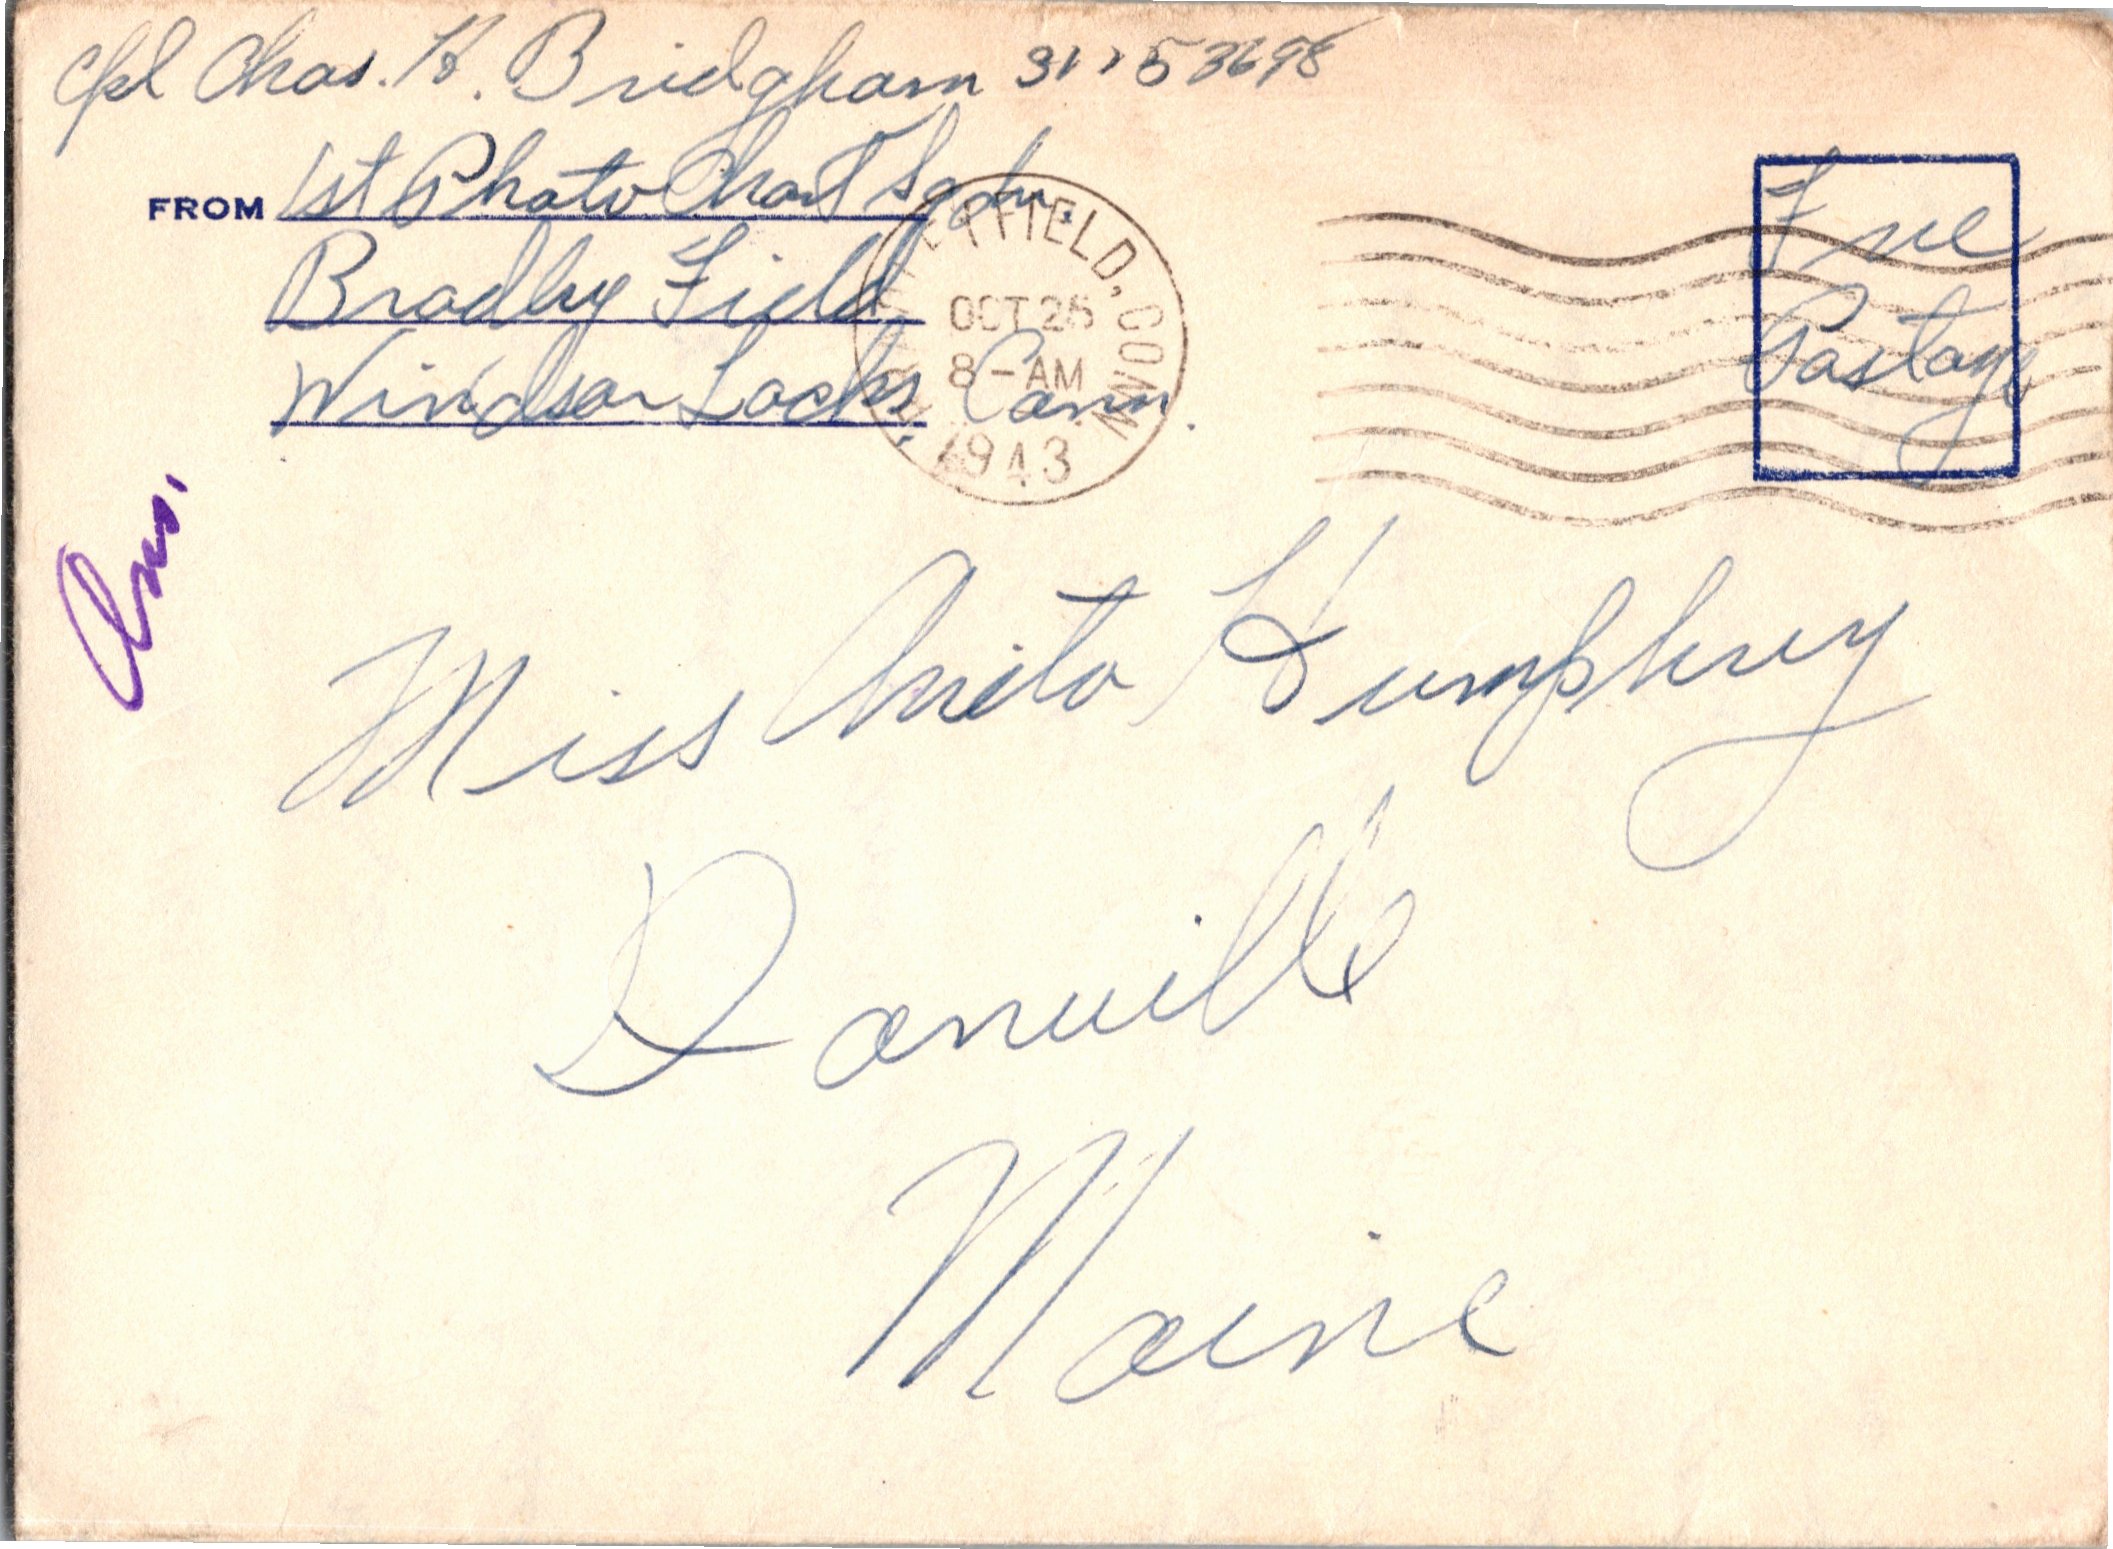 Cpl Chas. H. Bridgham 31153698
FROM 1st Photo Chart Sqdn.
Bradley Field
Windsor Locks, Conn.
FIELD, CONN.
OCT 25
8-AM
1943
Free
Postage
Ans.
Miss Anita Humphrey
Danville
Maine